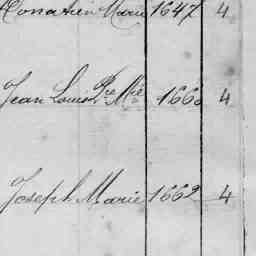 Donatien Marie 1647 4
Jean Louis Pre Mie 1660 4
Joseph Marie 1669 4